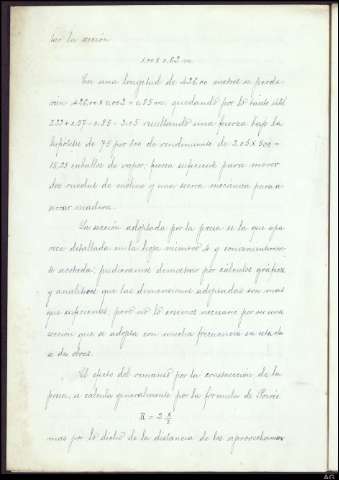 ter la sección
1.00 x 0.62 m.
En una longitud de 426.00 metros se perde-
rian 426.00 x 0.002 = 0.85 m. quedando por lo tanto útil
2.05 resultando una fuerza bajo la
hipótesis de 75 por 100 de rendimiento de 2.05 x 900 =
18.23 caballos de vapor, fuerza suficiente para mover
dos ruedas de molino y una sierra mecanica para a-
serrar madera.
La sección adoptada por la presa es la que apa-
rece detallada en la hoja número 4 y
acotada; pudieramos demostrar por cálculos gráficos
y analiticos que las dimensiones adoptadas son mas
que suficientes, pero no lo creemos necesario por ser una
sección que se adopta con mucha frecuencia en esta cla-
se de obras.
El efecto del remanso por la construcción de la
presa, se calcula generalmente por la formula de
R = 2
mas por lo dicho de la distancia de los aprovechamien-